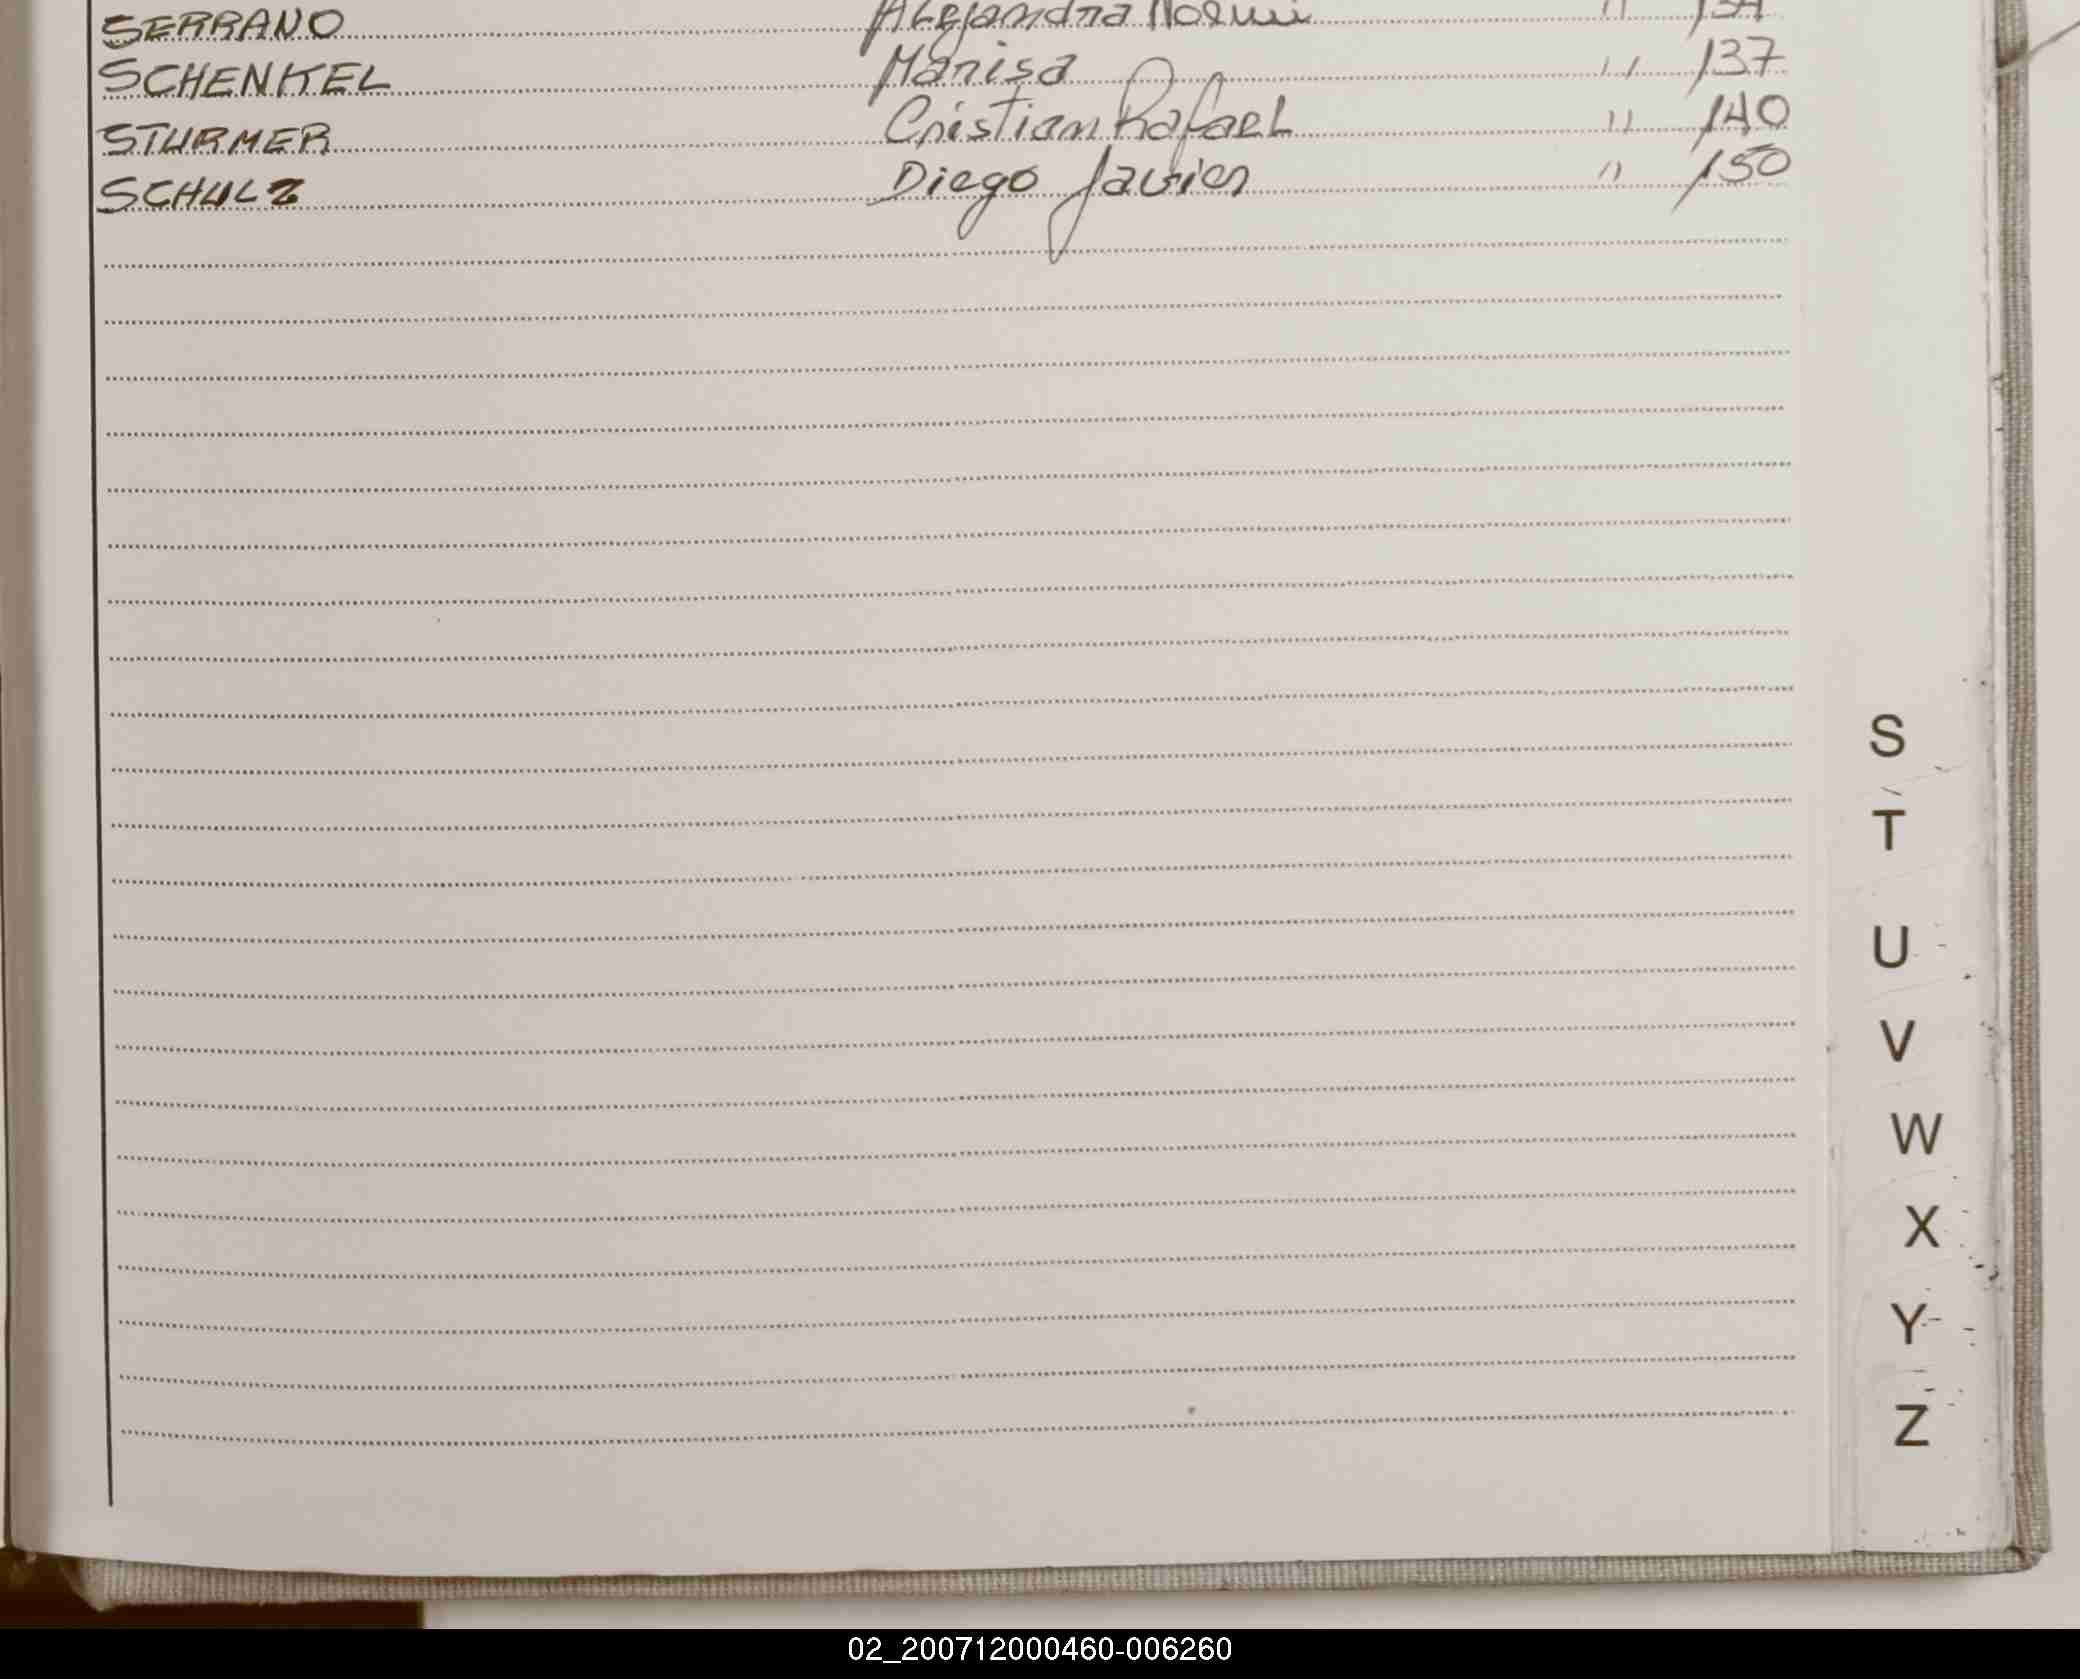 SERRANO Alejandra Noemi " 134
SCHENKEL Marisa " 137
STURMER Cristian Rafael " 140
SCHULZ Diego Javier " 150
S
T
U
V
W
X
Y
Z
02_200712000460-006260